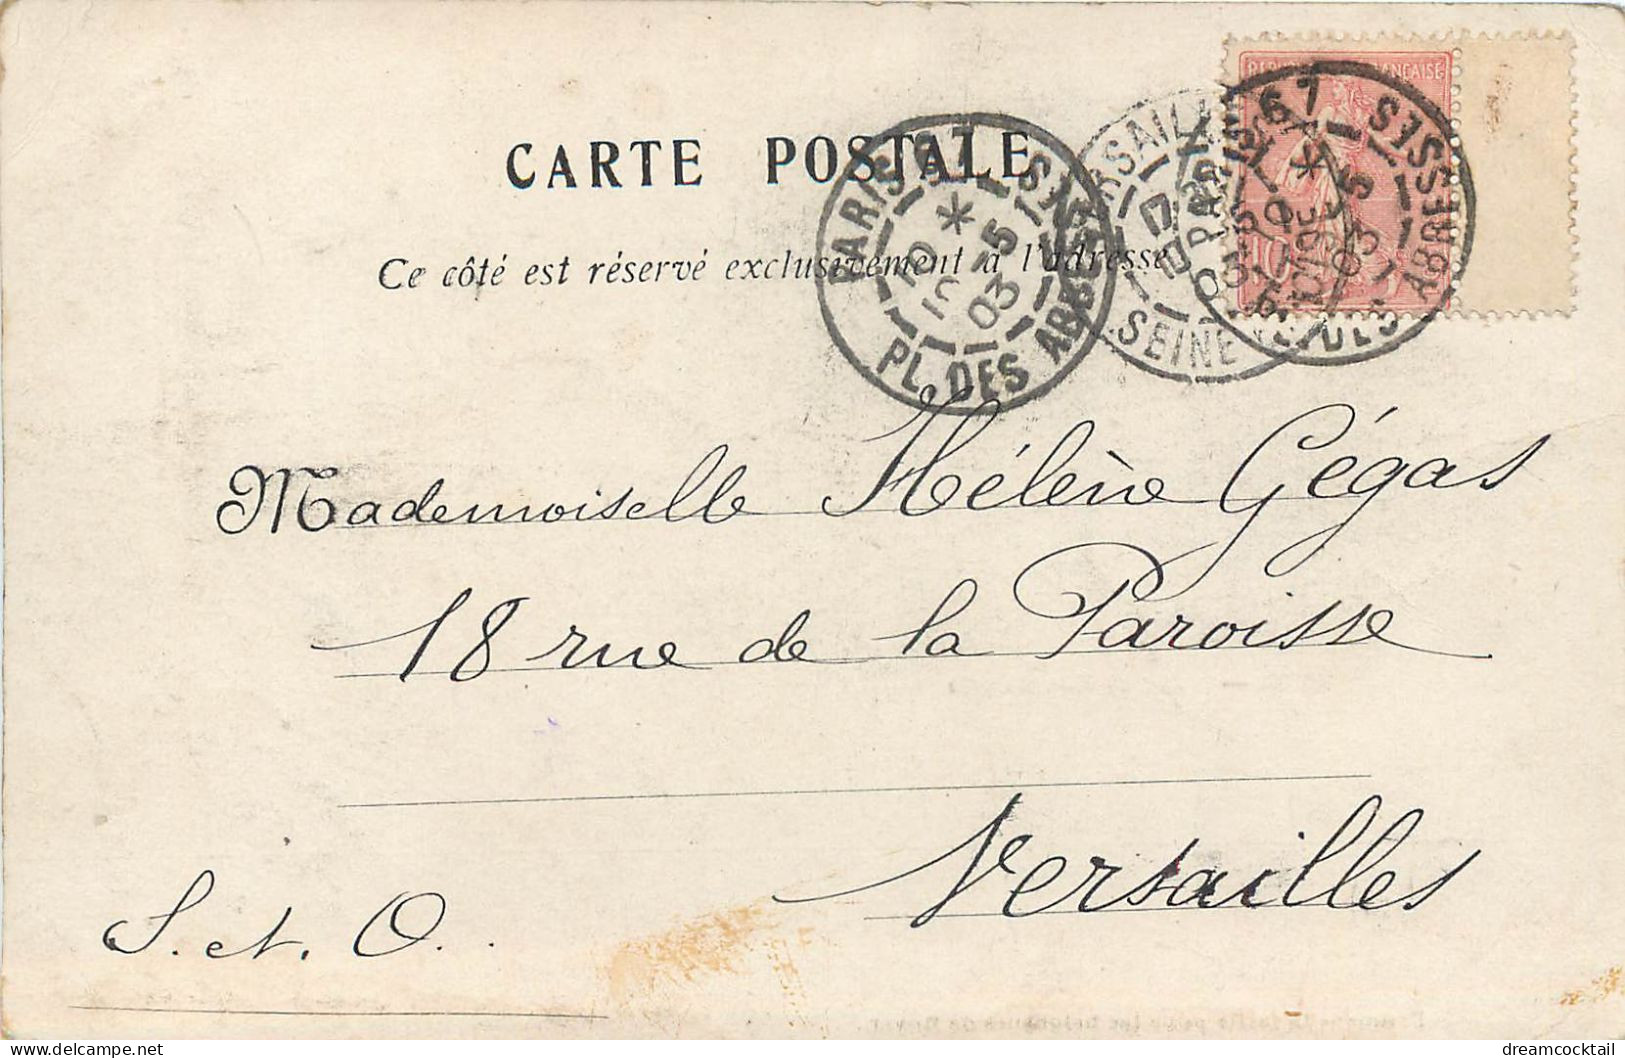 CARTE POSTALE
Ce côté est réservé exclusivement à l'adresse
RÉPUBLIQUE FRANÇAISE
PARIS 67
PL. DES ABBESSES
5
03
PARIS 67
PL. DES ABBESSES
5
03
VERSAILLES
SEINE
10
Mademoiselle Hélène Gégas
18 rue de la Paroisse
Versailles
S. et. O.
dreamcocktail